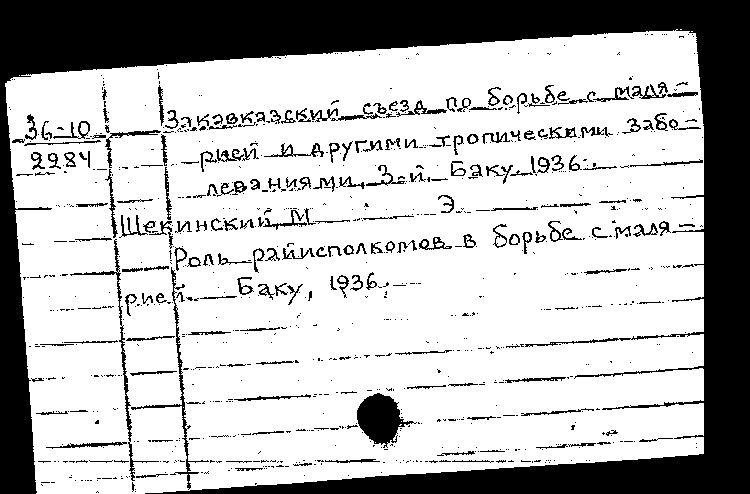 36-10
2284
Закавказский съезд по борьбе с маля-
рией и другими тропическими забо-
леваниями, 3-й. Баку. 1936.
Щекинский, М Э
Роль райисполкомов в борьбе с маля-
рией. Баку, 1936.